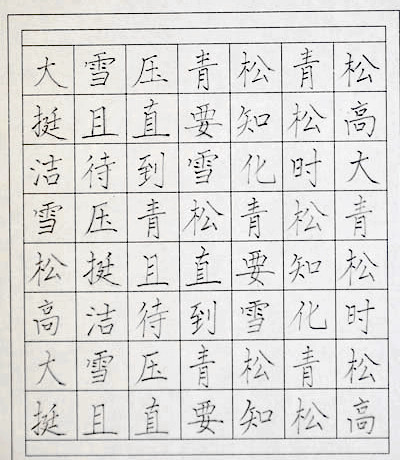 大雪压青松青松
挺且直要知松高
洁待到雪化时大
雪压青松青松青
松挺且直要知松
高洁待到雪化时
大雪压青松青松
挺且直要知松高